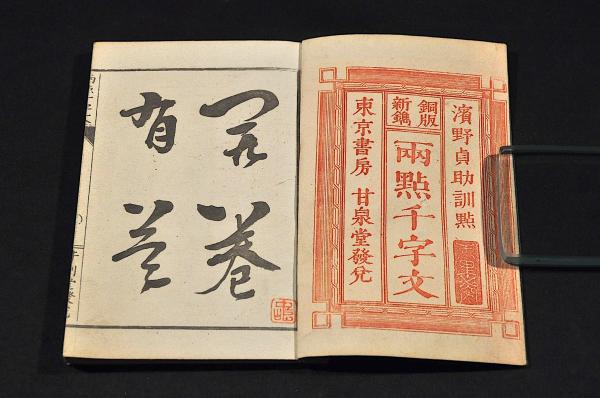 濱野貞助訓點
銅版
新鐫
兩點千字文
東京書房 甘泉堂發兌
開卷
有益